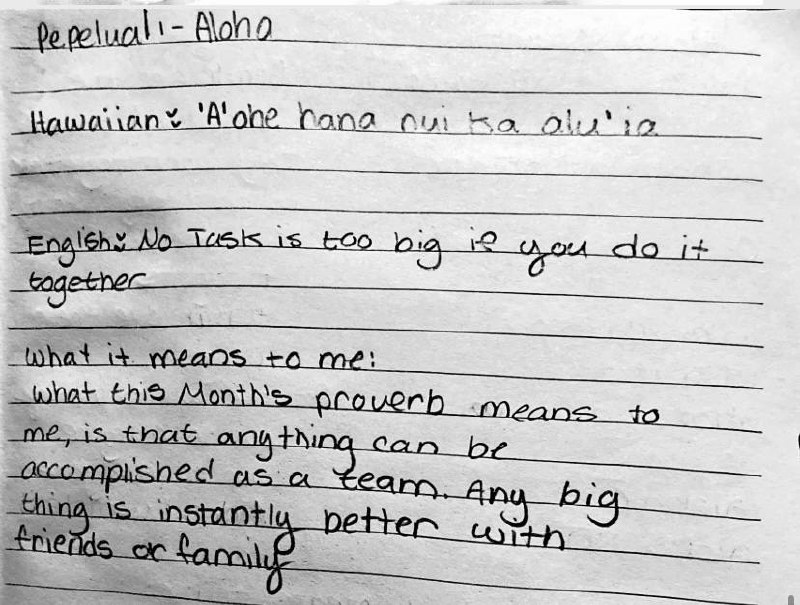 Pepeluali - Aloha
Hawaiian: 'A'ohe hana nui ka alu'ia
English: No Task is too big if you do it
together
What it means to me:
What this Month's proverb means to
me, is that anything can be
accomplished as a team. Any big
thing is instantly better with
friends or family